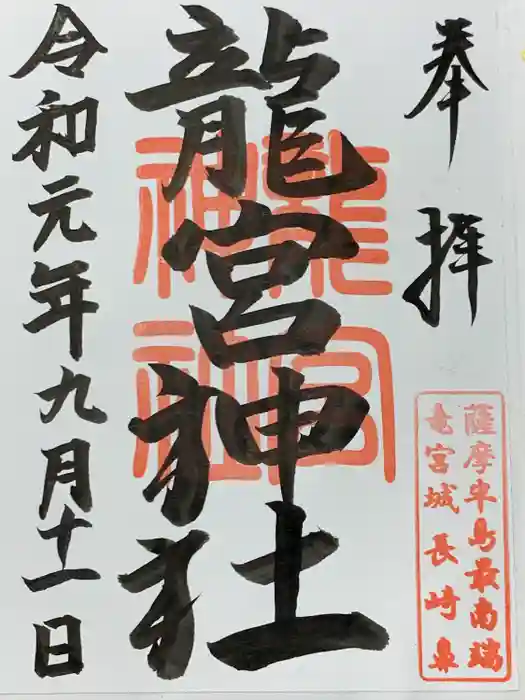 奉拝
龍宮神社
龍宮神社
薩摩半島最南端
竜宮城 長崎鼻
令和元年九月十一日